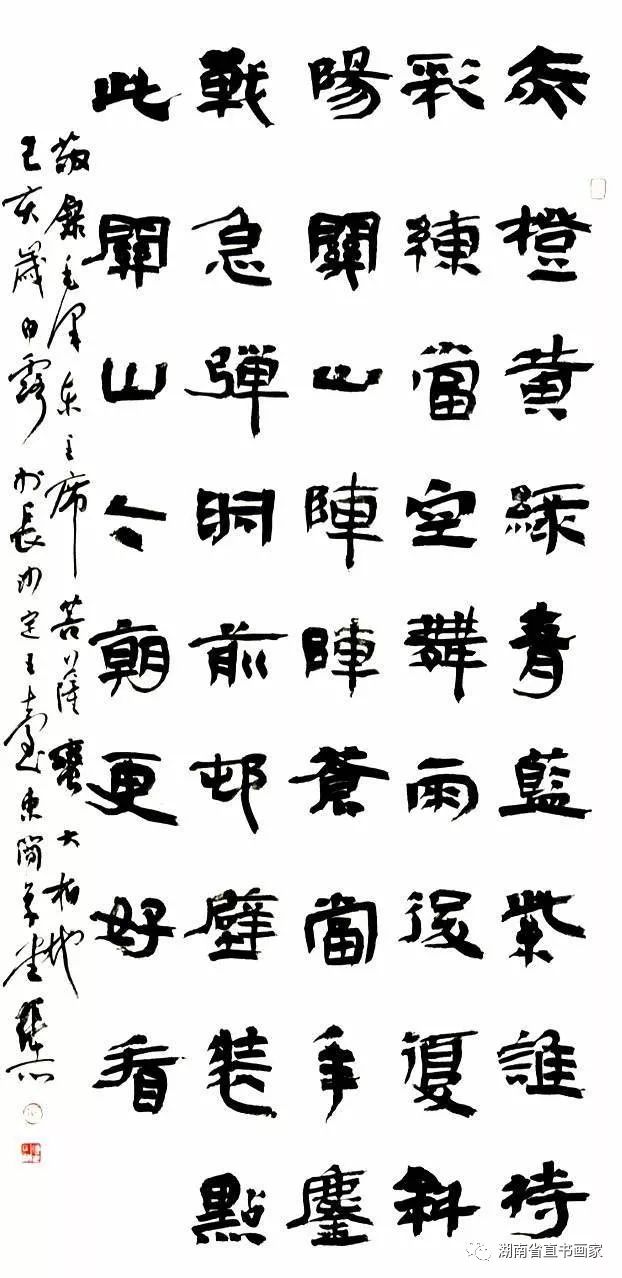 赤橙黄緑青藍紫誰持
彩練當空舞雨後復斜
陽關山陣陣蒼當年鏖
戰急彈洞前邨壁裝點
此關山今朝更好看
敬錄毛澤東主席菩薩蠻大柏地
己亥歲白露於長沙定王臺東簡草堂
湖南省直书画家